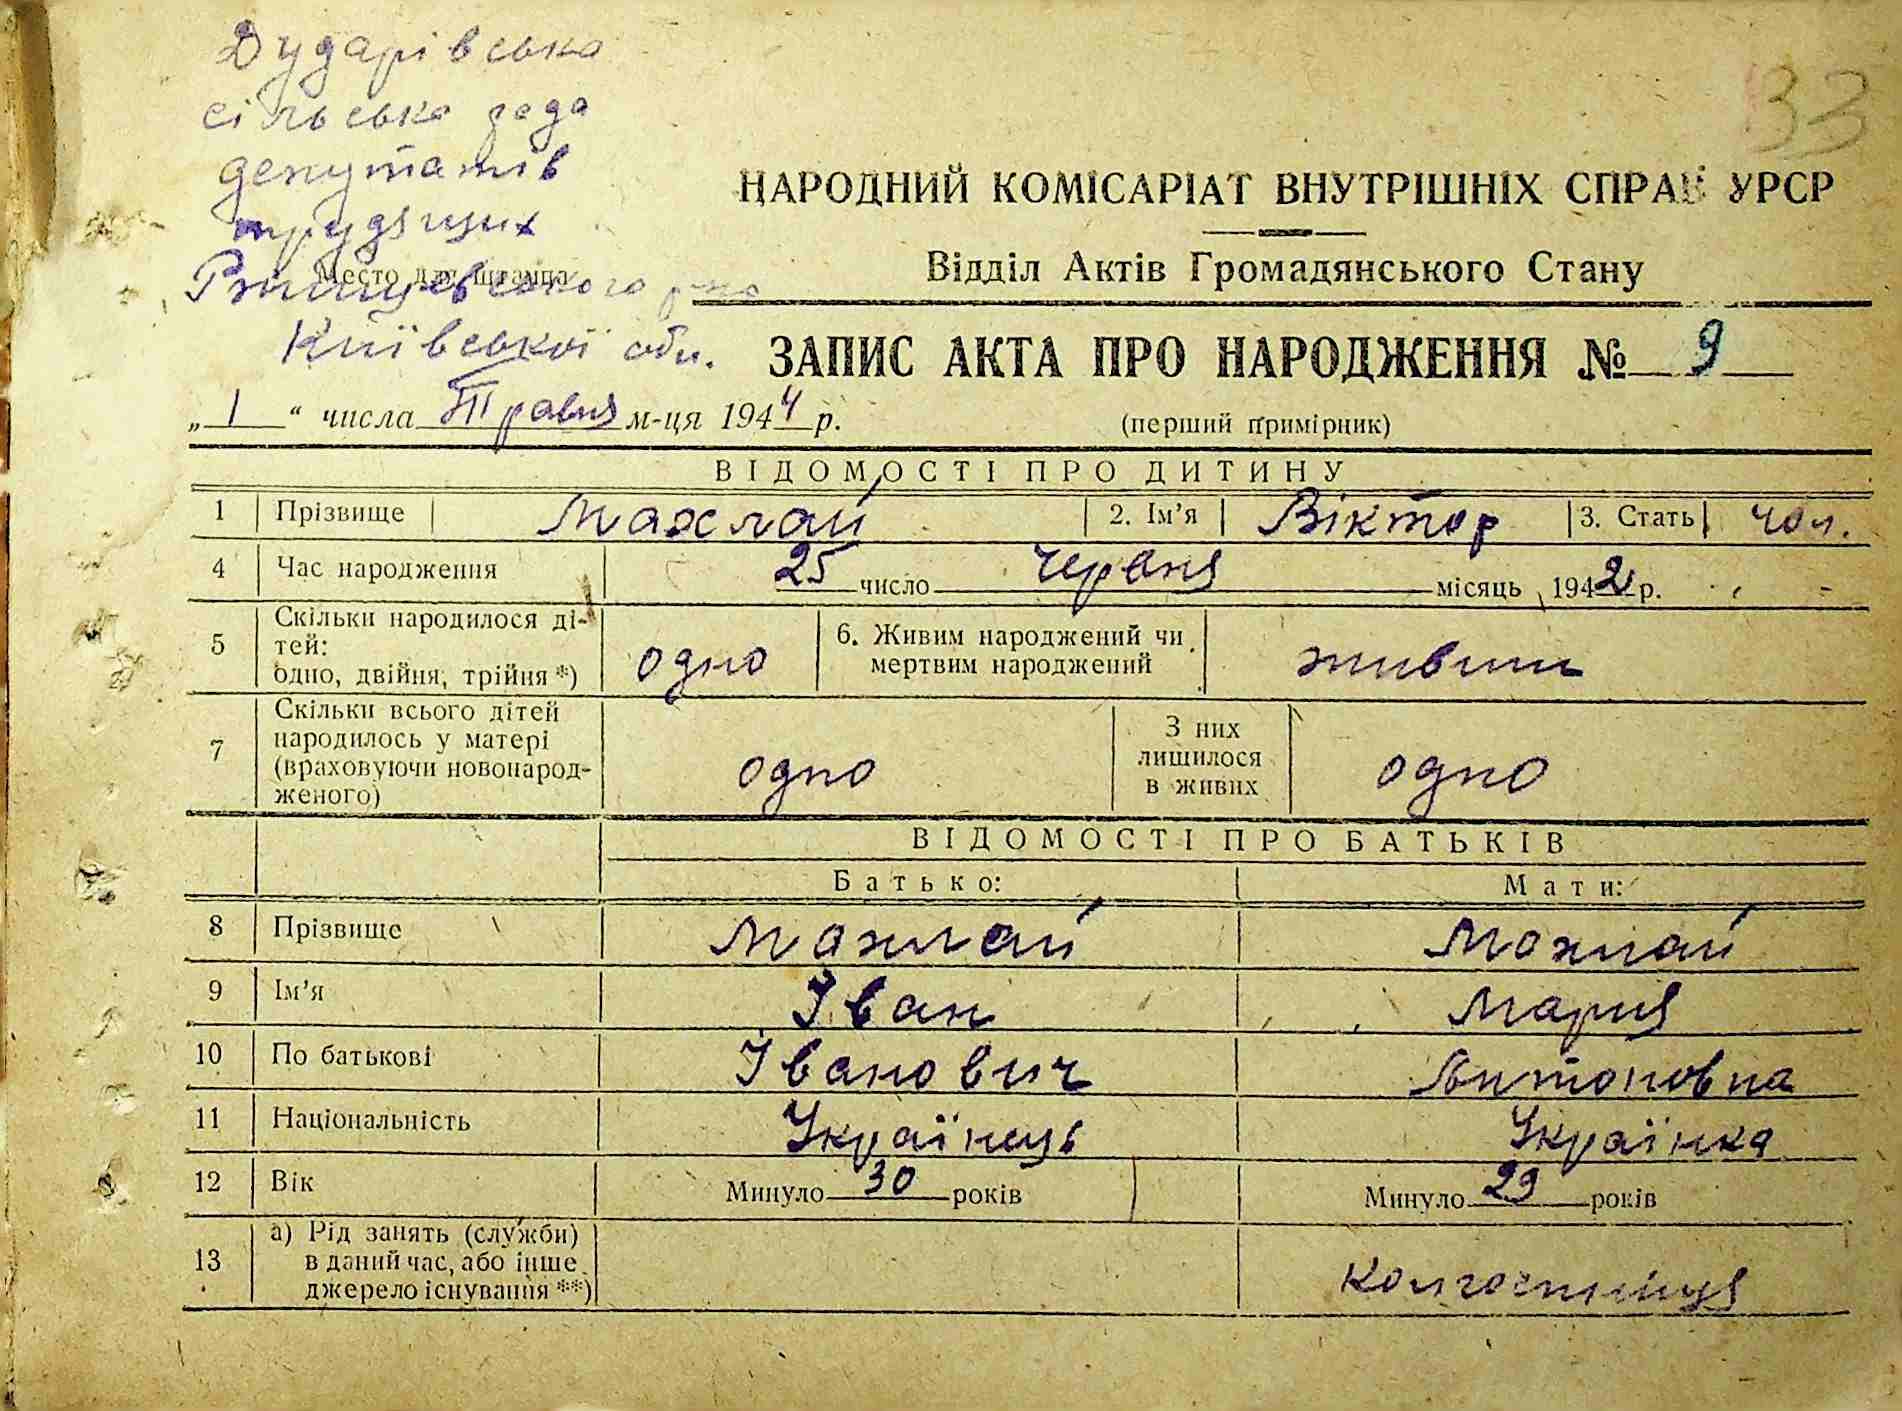 33
Дударівська
сільська рада
депутатів
трудящих
Место для штампа
Ржищевського р-на
Київської обл.
НАРОДНИЙ КОМІСАРІАТ ВНУТРІШНІХ СПРАВ УРСР
Відділ Актів Громадянського Стану
ЗАПИС АКТА ПРО НАРОДЖЕННЯ № 9
„1“ числа Травня м-ця 1944 р. (перший примірник)
ВІДОМОСТІ ПРО ДИТИНУ
1 Прізвище Махлай 2. Ім’я Віктор 3. Стать чол.
4 Час народження 25 число Червня місяць 1942 р.
5 Скільки народилося ді-
тей:
одно, двійня, трійня *) одно 6. Живим народжений чи
мертвим народжений живим
7 Скільки всього дітей
народилось у матері
(враховуючи новонарод-
женого) одно З них
лишилося
в живих одно
ВІДОМОСТІ ПРО БАТЬКІВ
Батько: Мати:
8 Прізвище Махлай Махлай
9 Ім’я Іван Мария
10 По батькові Іванович Антоновна
11 Національність Українець Українка
12 Вік Минуло 30 років Минуло 29 років
13 а) Рід занять (служби)
в даний час, або інше
джерело існування **) Колгоспниця